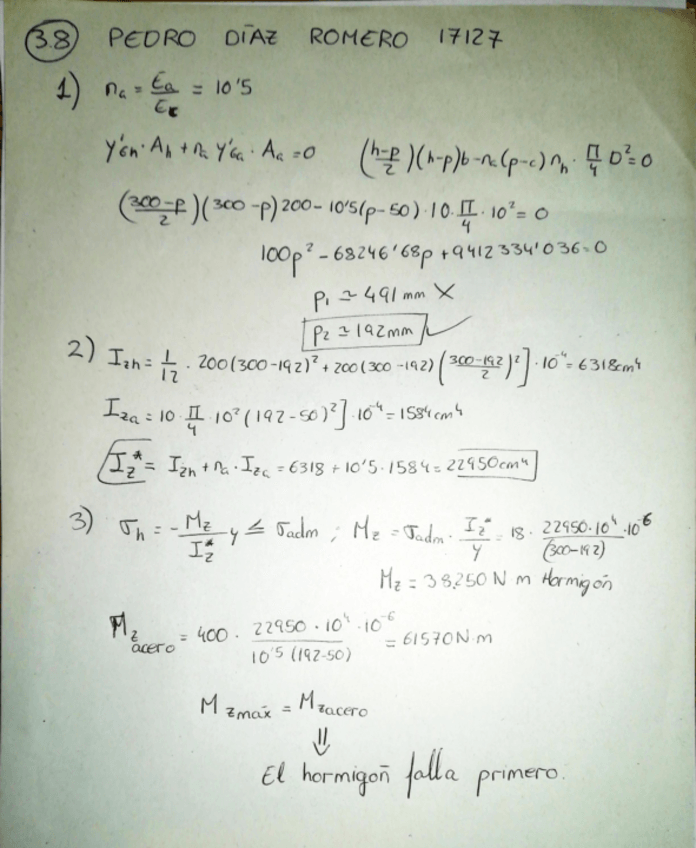 3.8 PEDRO DÍAZ ROMERO 17127
1) na = Ea/Ec = 10'5
y'Gh · Ah + na y'Ga · Aa = 0 ((h-p)/2)(h-p)b - na(p-c) nh · π/4 D² = 0
((300-p)/2)(300-p)200 - 10'5(p-50) · 10 · π/4 · 10² = 0
100p² - 68246'68p + 9412334'036 = 0
p₁ ≃ 491 mm X
p₂ ≃ 192mm ✓
2) Izh = 1/12 · 200(300-192)² + 200(300-192)((300-192)/2)²] · 10⁻⁴ = 6318cm⁴
Iza = 10 · π/4 · 10²(192-50)²] · 10⁻⁴ = 1584cm⁴
Iz* = Izh + na · Iza = 6318 + 10'5 · 1584 = 22950cm⁴
3) σh = -Mz/Iz* y ≤ σadm ; Mz = σadm · Iz*/y = 18 · 22950·10⁴/(300-192) · 10⁻⁶
Mz = 38250 N m Hormigoñ
Mz acero = 400 · 22950 · 10⁴ · 10⁻⁶/10'5 (192-50) = 61570N·m
Mzmax = Mzacero
⇓
El hormigoñ falla primero.